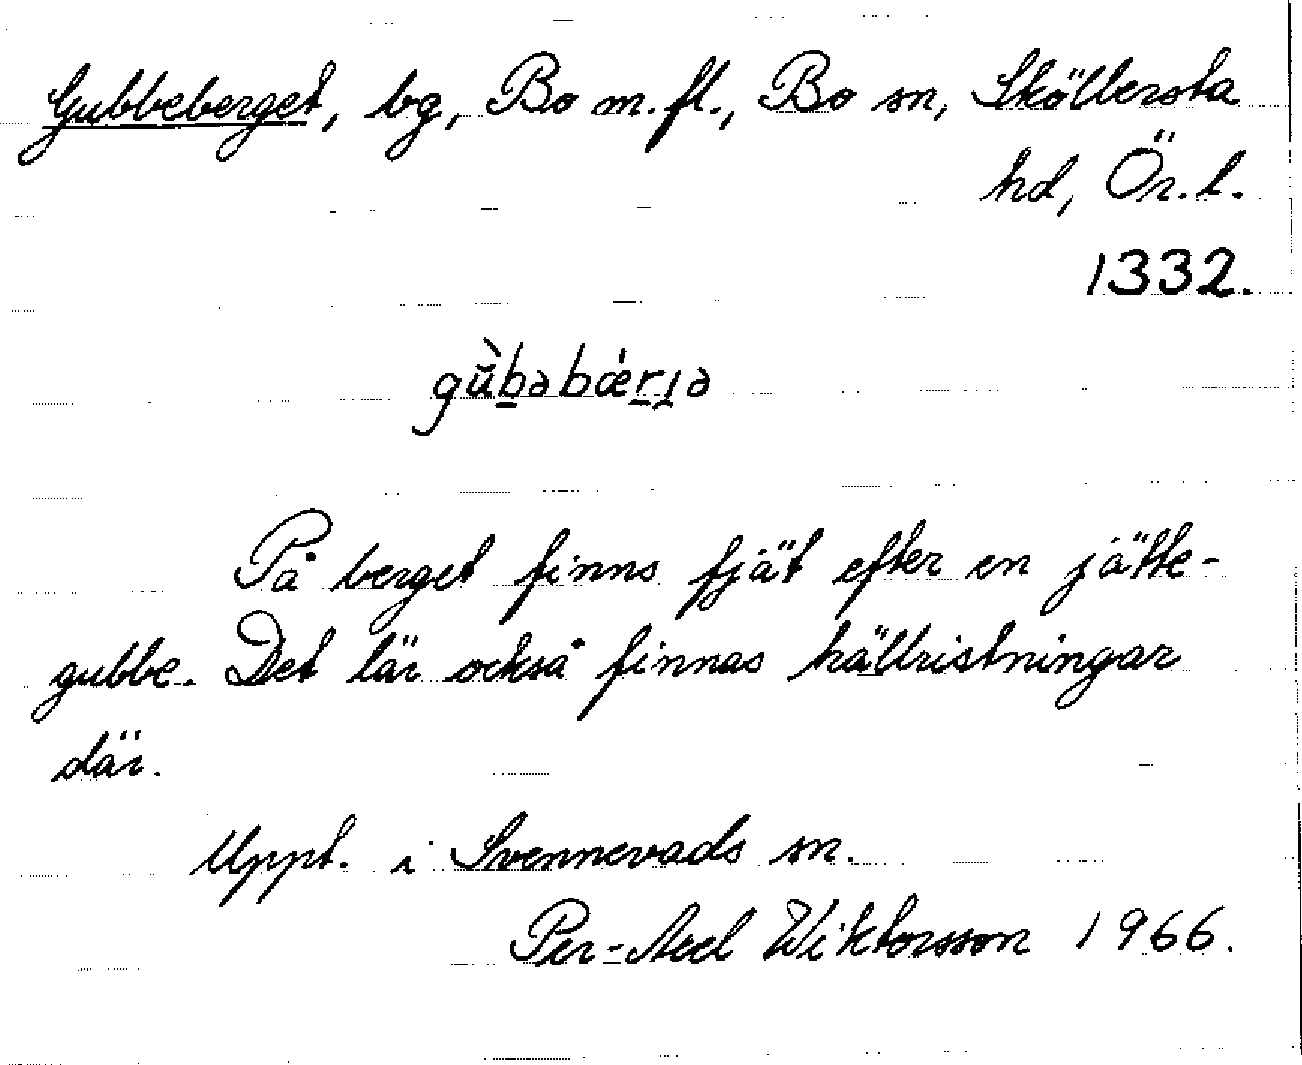 Gubbeberget, bg, Bo m.fl., Bo sn, Sköllersta
hd, Ör.l.
1332.
På berget finns fjät efter en jätte-
gubbe. Det lär också finnas hällristningar
där.
Uppt. i Svennevads sn.
Per-Axel Wiktorsson 1966.